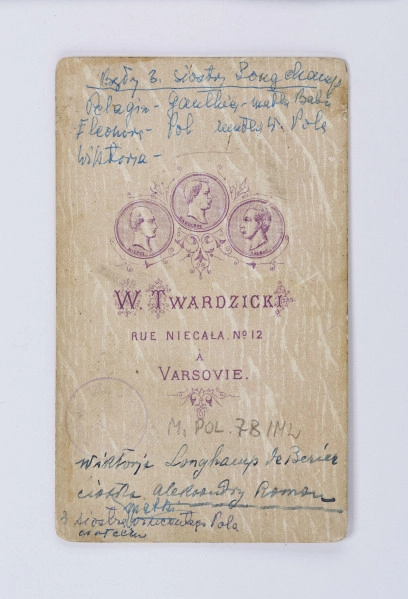 Były 3. siostry Longchamps
Pelagia - Gauthier - matka Babci
Eleonora - Pol W. Pola
Wiktoria -
W. TWARDZICKI
RUE NIECAŁA, No 12
À
VARSOVIE.
M. POL. 78/ML
Wiktorja Longhamp de Berier
ciotka Aleksandry Roman
matki
3 siostra Wincentego Pola